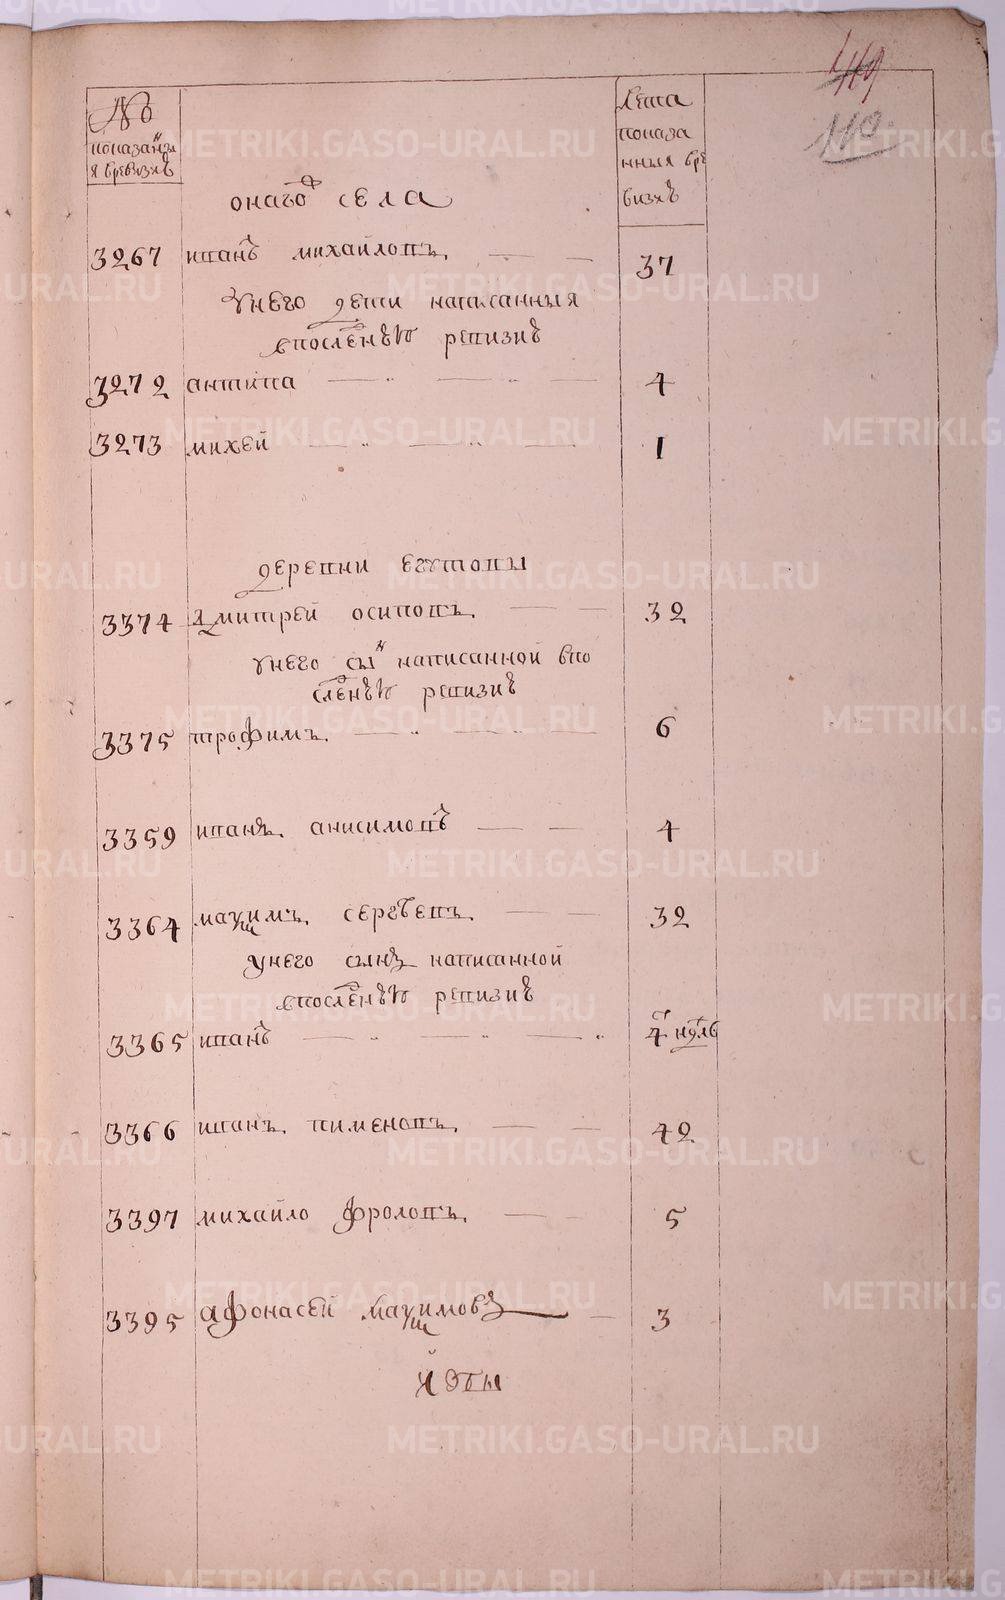 119
110
№
показанны
я вревизиѣ
Лета
показа
нныя вре
визиѣ
онаго села
3267 иванъ михайловъ 37
унего дети написанныя
впослѣдней ревизиѣ
3272 антипа 4
3273 михей 1
деревни
3374 дмитрей осиповъ 32
унего сынъ написанной впо
следней ревизиѣ
3375 трофимъ 6
3359 иванъ анисимовъ 4
3364 мақимъ сергѣевъ 32
унего сынъ написанной
впоследней ревизиѣ
3365 иванъ
3366 иванъ пименовъ 42
3397 михайло фроловъ 5
3395 афонасей мақимовъ 3
METRIKI.GASO-URAL.RU